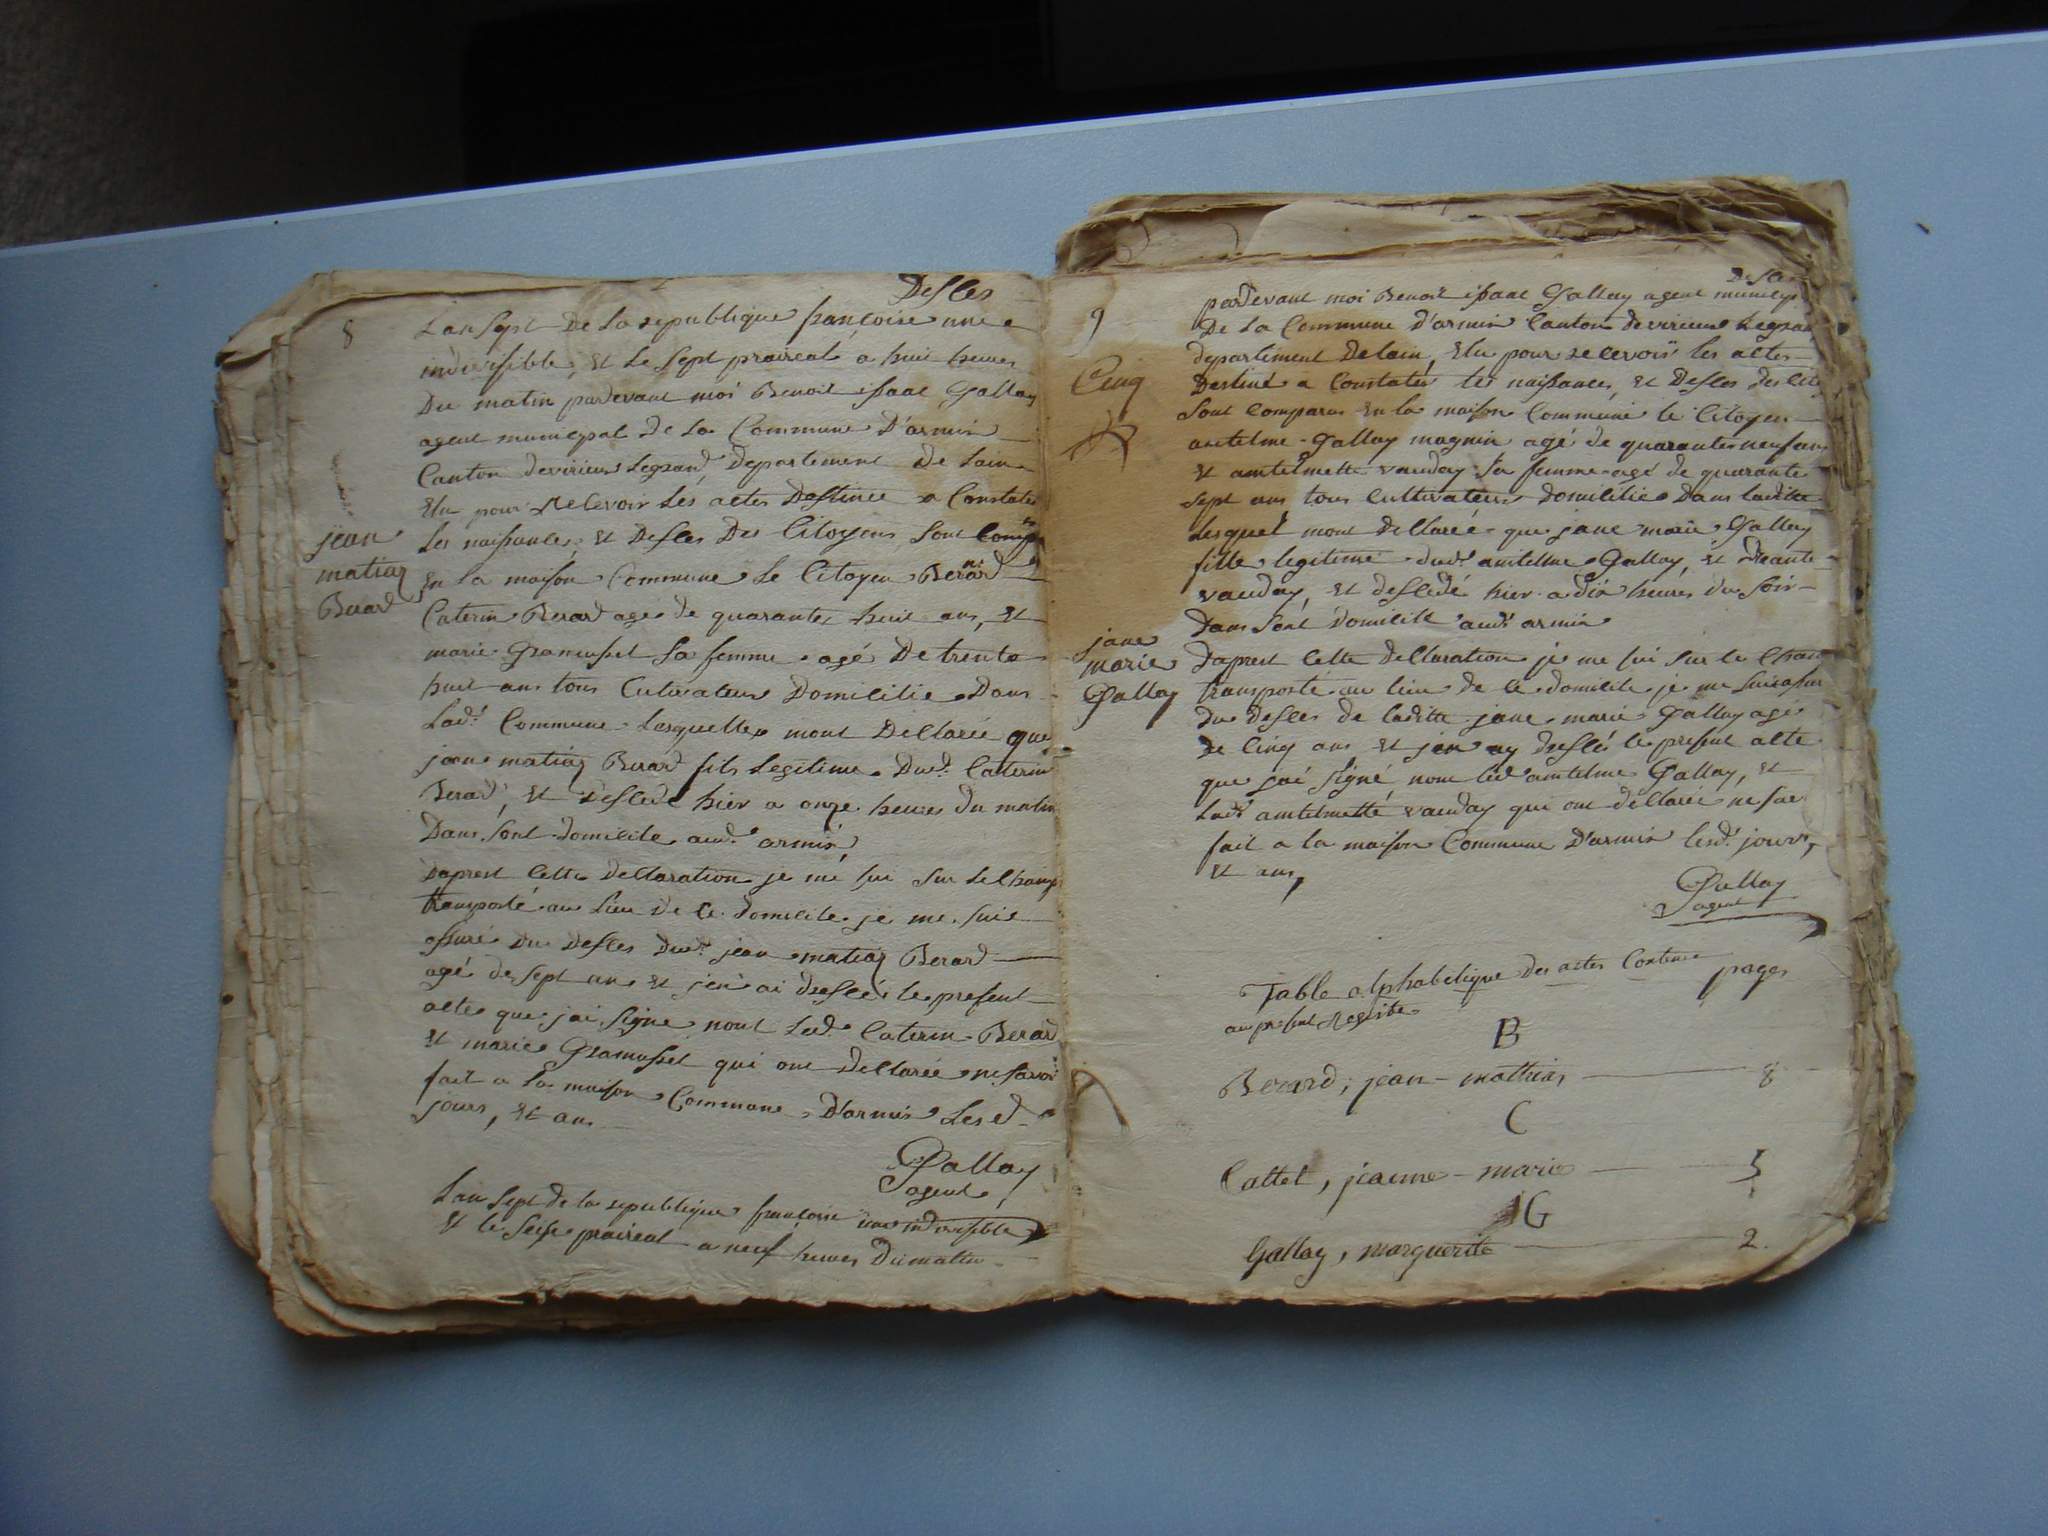 Desses
8
Lan sept De La republique françoise une
indivisible, Et Le sept prairéal a huit heures
Du matin pardevant moi Benoit issaac Gallay
agent municipal De La Commune D'armix
Canton devirieu Legrand, Departement De Lain
Elu pour Recevoir Les actes Destinée a Constater
Les naissances, Et Desses Des Citoyens Sont Comp
En La maison Commune Le Citoyen Berard
jean
matiaz
Berard
Caterin Berard age de quarante huit ans, Et
marie Gramusset Sa femme agé De trente
huit ans tous Cutivateurs Domicilié Dans
Lad. Commune Lesquelles mont Decllarée que
jean matiaz Berard fils Legitime Dud. Caterin
Berad, Et Dessede hier a onze heures Du matin
Dans Sont domicile aud. armix,
Daprest Cette Decllaration je me sui Sur Le Champ
transporté au Lieu De Ce domicile je me suis
assuré Du Desses Dud. jean matiaz Berard
agé de sept ans Et j'en ai dressée le present
acte que jai Signé nont Led. Caterin Berard
Et marie Gramusset qui ont Decllarée ne savoir
fait a La maison Commune D'armix Lesd.
jours, Et ans
Gallay
agent
Lan Sept de la republique françoise une indivisible
Et le seise prairéal a neuf heures Du matin
9
pardevant moi Benoit issaac Gallay agent municip
De La Commune D'armix Canton de virieu Legran
departement Delain, Elu pour recevoir les actes
Cinq
Destiné a Constater les naissances, Et Desses des Cito
Sont Comparus En la maison Commune le Citoyen
antelme Gallay magnin agé de quarante neuf ans
Et antelmette vauday Sa femme agé de quarante
sept ans tous Cultivateurs domicilié Dans ladite
Lesquel mont Decllarée que jane marie Gallay
fille legitime dud. antelme Gallay, Et
vauday, Et dessedé hier a dix heures du Soir
Dans Sont Domicile aud. armix
jane
marie
Gallay
Daprest Cette Decllaration je me sui sur le Cham
transporté au lieu de ce domicile je me suis assur
du desses de ladite jane marie Gallay agé
de Cinq ans Et jen ay dressée le present acte
que jai signé nont led antelme Gallay, Et
Lad. antelmette vauday qui ont decllarée ne sav
fait a la maison Commune D'armix lesd. jours,
Et ans,
Gallay
agent
Table alphabetique des actes Contenue pages
au present Registre
B
Berard, jean-mathias 8
C
Cattet, jeanne-marie 5
G
Gallay, marguerite 2.